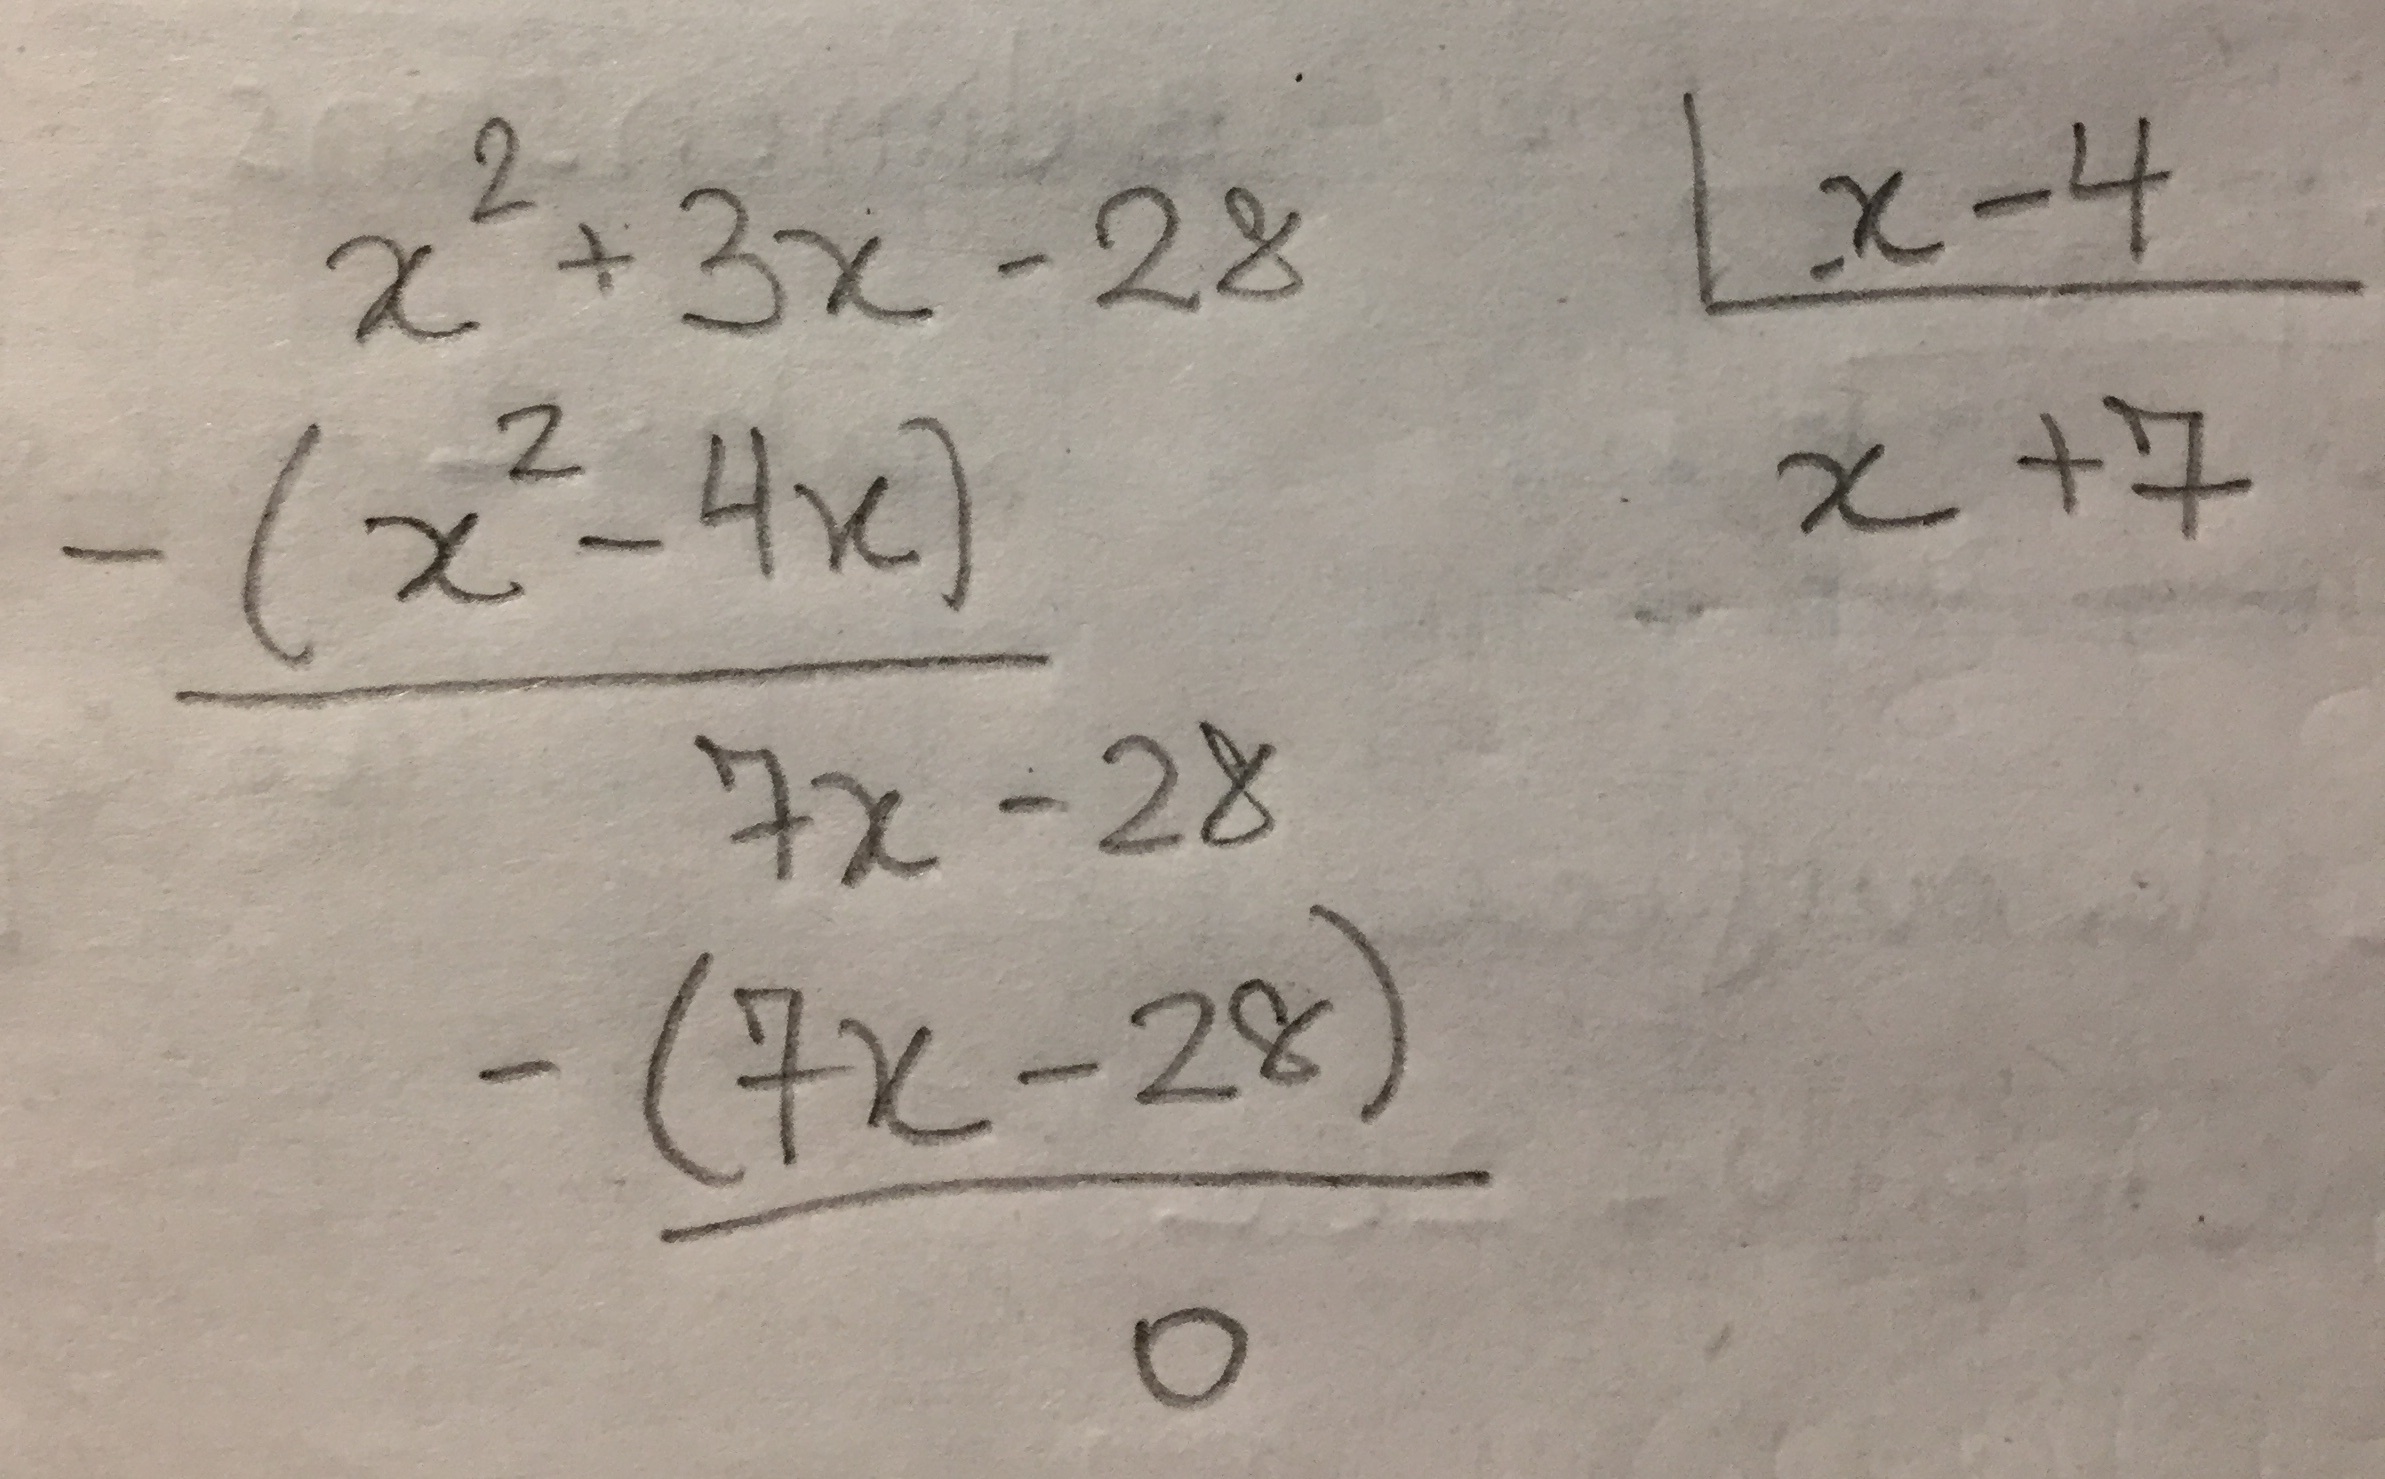 x² + 3x - 28 | x - 4
- (x² - 4x) x + 7
7x - 28
- (7x - 28)
0